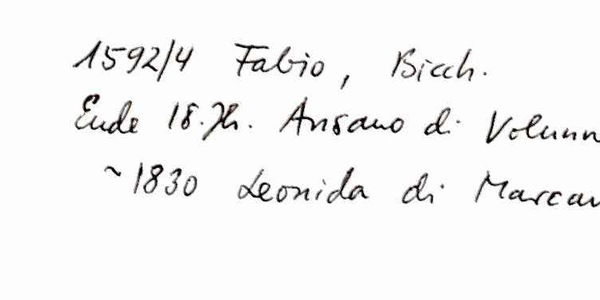 1592/4 Fabio, Bicch.
Ende 18. Jh. Ansano di Volunn
~1830 Leonida di Marcan